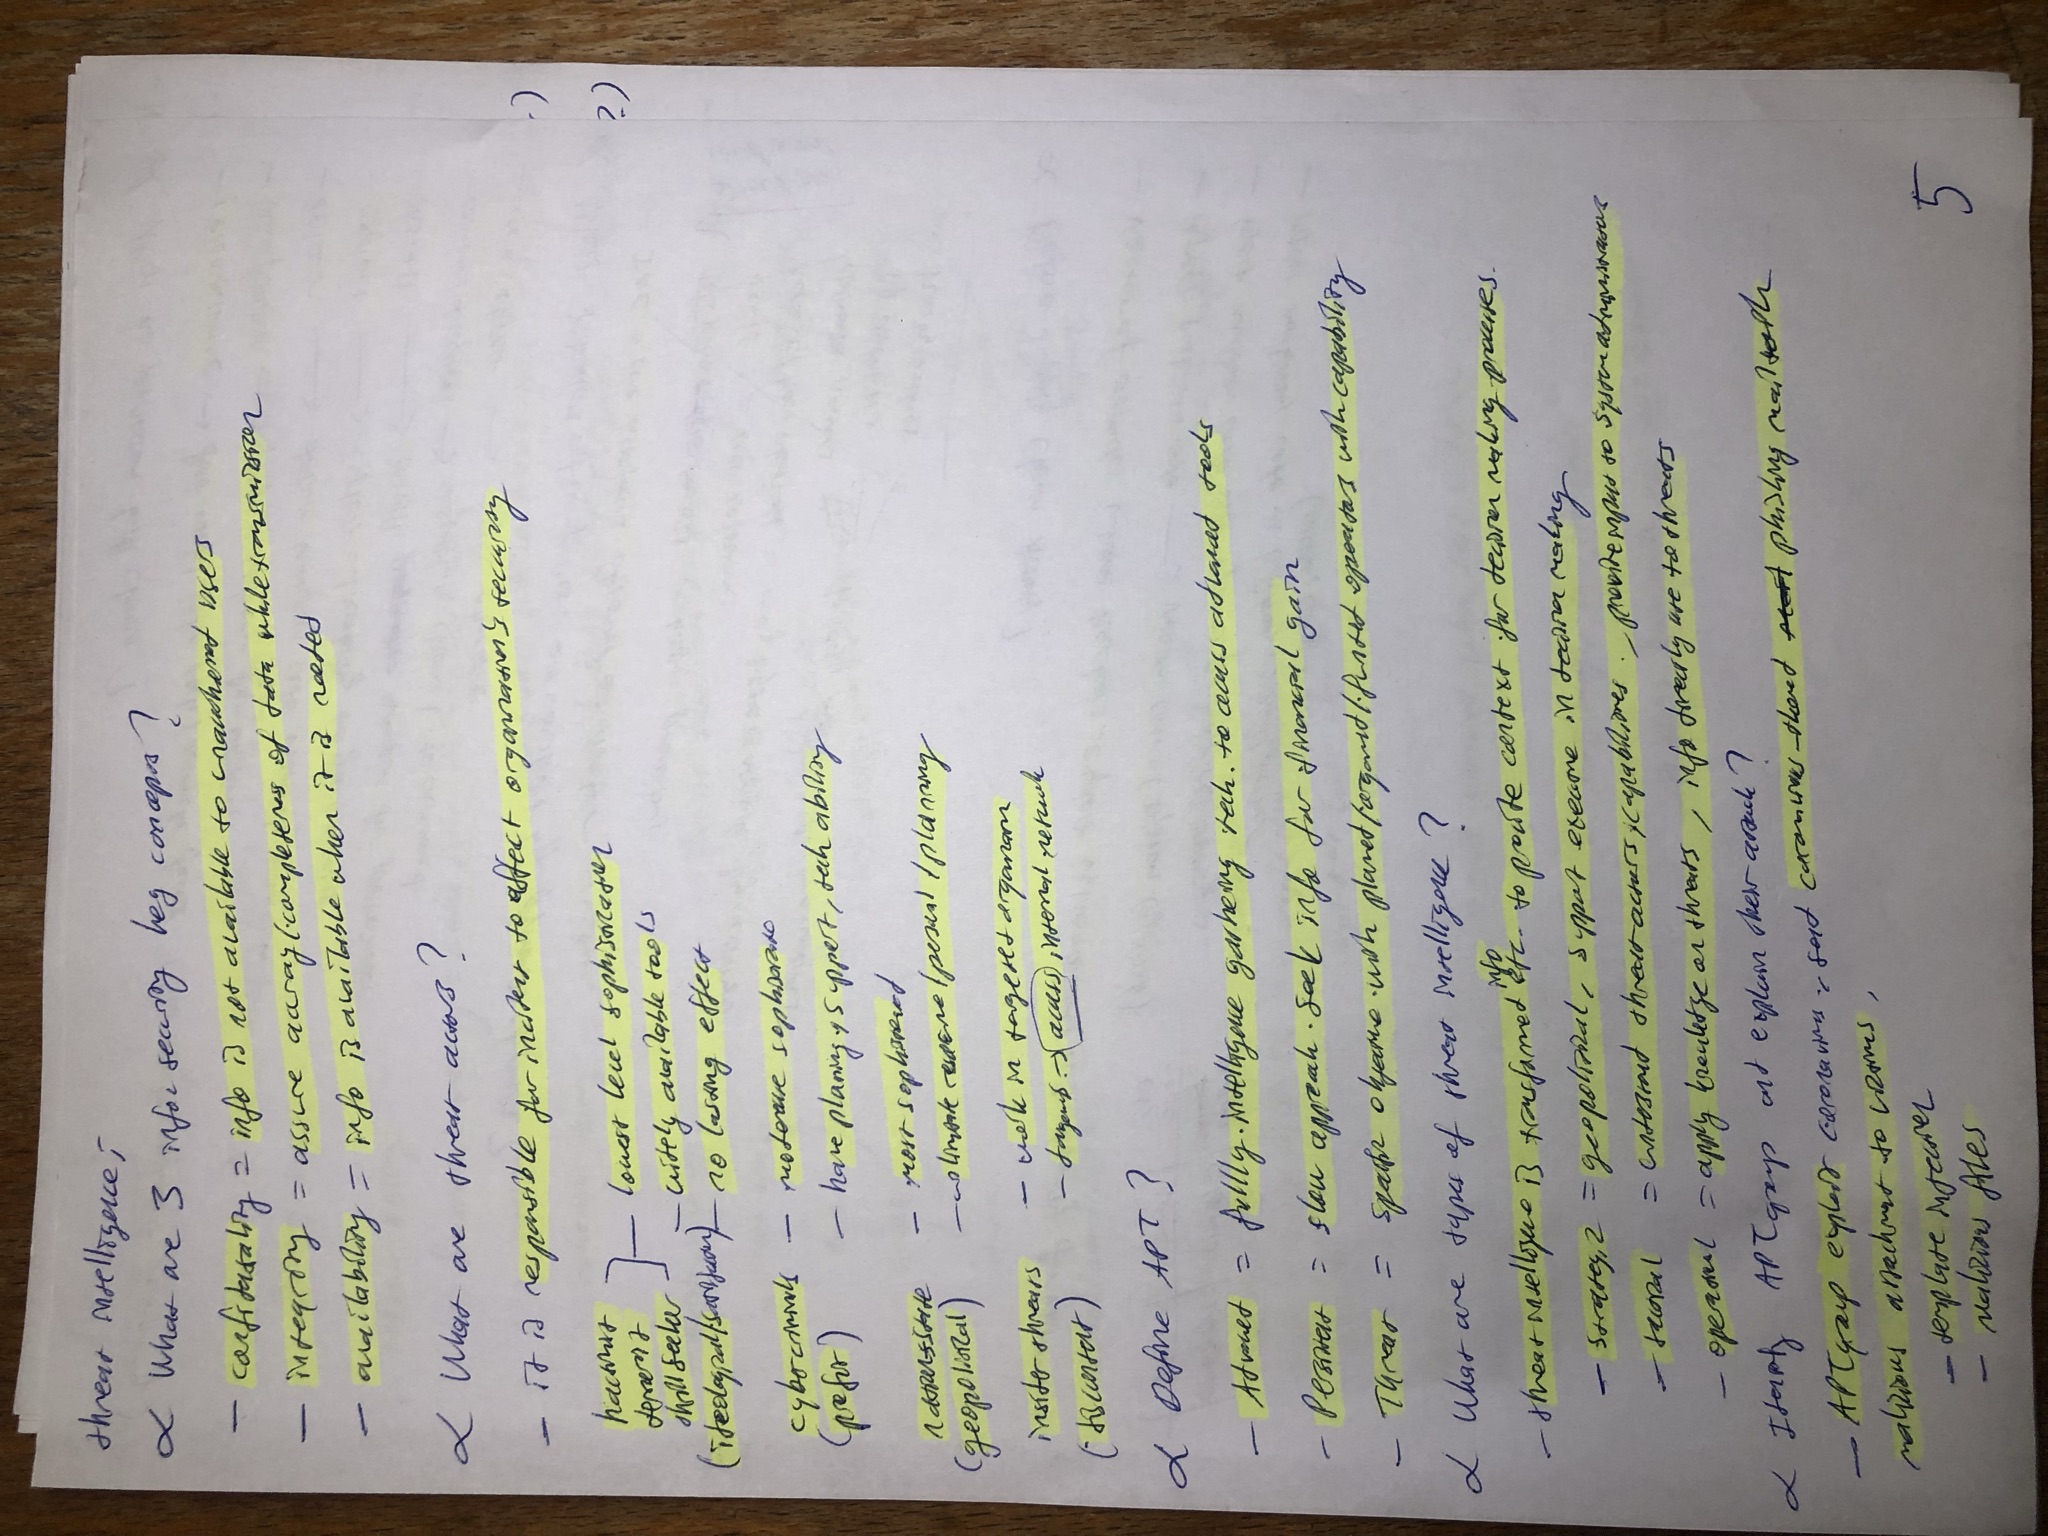 threat intelligence;
α What are 3 infor security key concepts?
- confidentiality = info is not available to unauthorized users
- integrity = assure accuracy/completeness of data while transmission
- availability = info is available when it is needed
α What are threat actors?
- it is responsible for incident to effect organization's security
.)
?)
hacktivist - lowest level sophistication
terrorist
thrill seeker - widely available tools
(ideological/satisfaction) - no lasting effect
cybercriminals - moderate sophisticated
(profit) - have planning, support, tech ability
nation-state - most sophisticated
(geopolitical) - ultimate /personal/planning
insider threats - work in targeted organization
(discontent) - → access, internal network
α Define APT?
- Advanced = fully. intelligence gathering tech. to access advanced tools
- Persistent = slow approach. Seek info for financial gain
- Threat = specific objective. with planned/organized/ operators with capability
α What are types of threat intelligence?
- threat intelligence is transformed info etc. to provide context for decision making processes.
- strategic = geopolitical, support executive in decision making
- tactical = understand threat actors, capabilities. , provide to system administrators
- operational = apply knowledge on threats, info directly to threats
α Identify APT group and explain their attack?
- APT group exploit coronavirus: send coronavirus-themed phishing mail with
malicious attachment to victims,
- template
- malicious files
5